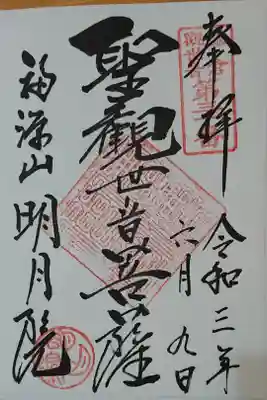 奉拝
令和三年
六月九日
聖觀世音菩薩
福源山明月院